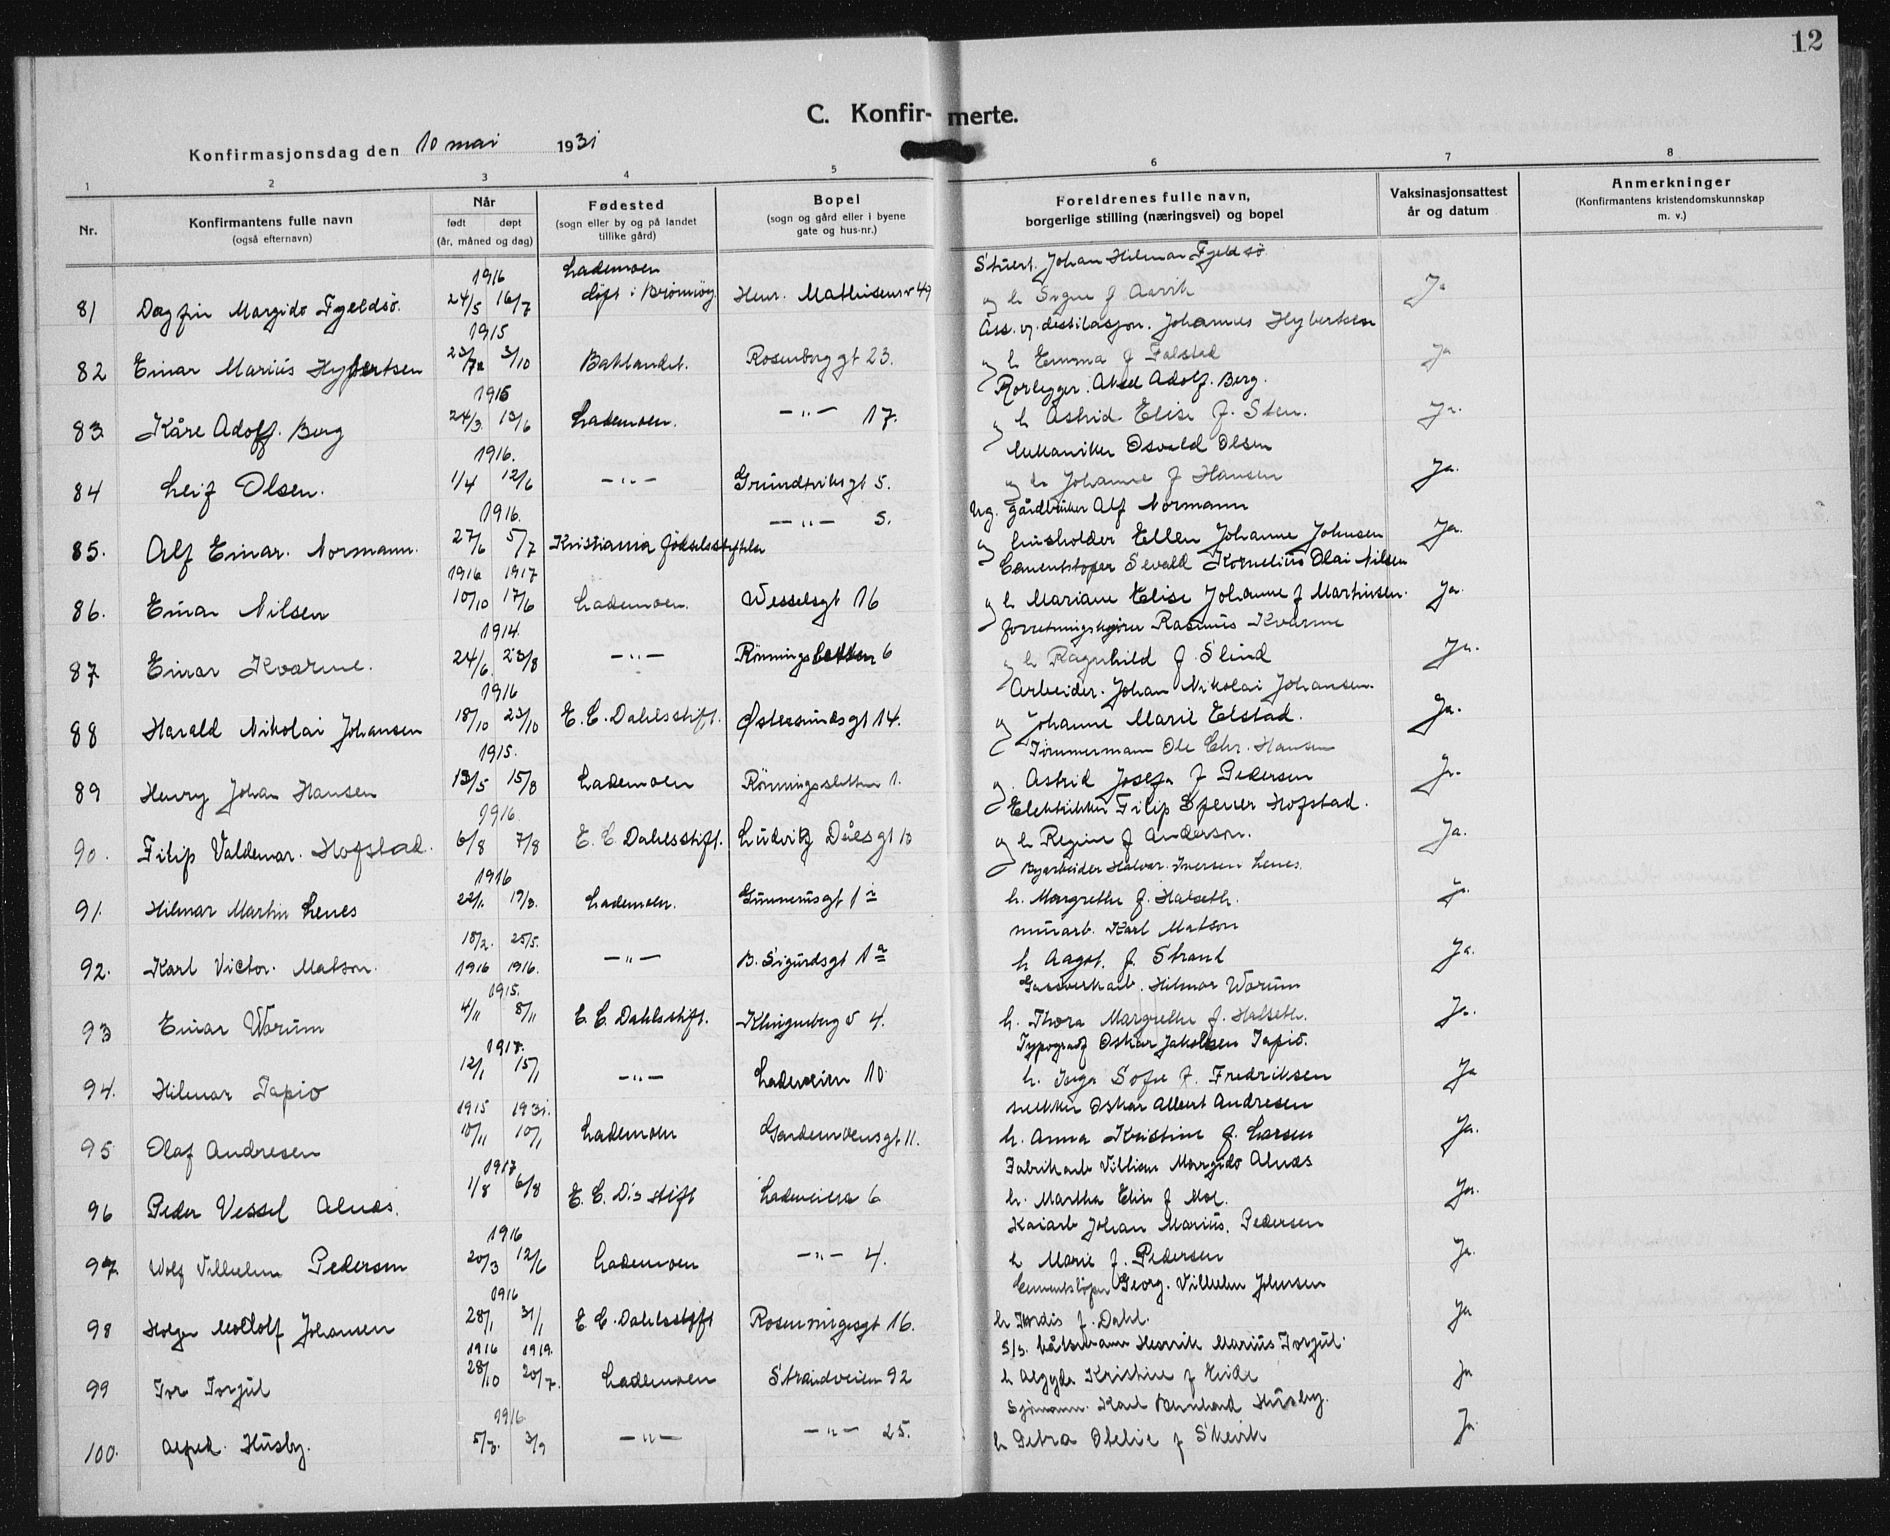 12
C. Konfir- merte.
Konfirmasjonsdag den 10 mai 1931
1 2 3 4 5 6 7 8
Nr.
Konfirmantens fulle navn
(også efternavn)
Når
født døpt
(år, måned og dag)
Fødested
(sogn eller by og på landet
tillike gård)
Bopel
(sogn og gård eller i byene
gate og hus-nr.)
Foreldrenes fulle navn,
borgerlige stilling (næringsvei) og bopel
Vaksinasjonsattest
år og datum
Anmerkninger
(Konfirmantens kristendomskunnskap
m. v.)
1916 Lademoen Stuert. Johan Hilmar Fjeldsø
81 Dagfin Margido Fjeldsö. 24/5 16/7 döpt i Brönnöy. Henr. Mathisensv 49 og h Signe f Aarvik Ja
1915 Ass. v. destilasjon. Johannes Hybertsen
82 Einar Marius Hybertsen 3/10 Baklandet. Rosenborggt 23. og h Emma f Falstad Ja
1915 Rørlegger. Aksel Adolf. Berg.
83 Kåre Adolf. Berg 24/3 13/6 Lademoen. —"— 17. og h Astrid Elise f. Sten. Ja.
1916. Mekaniker Osvald Olsen
84 Leif Olsen. 1/4 12/6 —"— Grundtviksgt 5. og h Johanne f Hansen Ja.
1916. Ug. gårdbruker Alf Normann
85. Alf Einar. Normann. 27/6 5/7 Kristiania fødselsstiftelse —"— 5. og husholder Ellen Johanne Johnsen Ja.
1916 1917 Cementstøper Sevald Kornelius Olai Nilsen
86. Einar Nilsen 10/10 17/6 Lademoen. Wesselsgt 16 og h Mariane Elise Johanne f Martinsen. Ja.
1914. Forretningskjører Rasmus Kvarme
87 Einar Kvarme. 24/6 23/8 —"— Rönningsletten 6 og h Ragnhild f Slind Ja.
1916 Arbeider. Johan Nikolai Johansen.
88 Harald Nikolai Johansen 18/10 23/10 E. C. Dahlsstift. Østersundsgt 14. og Johanne Marie Elstad. Ja.
1915. Tömmermann Ole Chr. Hansen
89 Henry Johan Hansen 13/5 15/8 Lademoen Rönningsletten 1. og. Astrid Josefa f Pedersen Ja.
1916. Elektriker Filip Spener Hofstad.
90. Filip Valdemar. Hofstad. 6/8 7/8 E. C Dahlsstift. Ludvig Dåesgt 10 og h Regine f Anderson. Ja.
1916 Byarbeider Halvar. Iversen Lenes.
91. Hilmar Martin Lenes 22/1 19/3. Lademoen. Gunnerusgt 1 h. Margrethe f. Halseth. Ja.
18/2. 25/5. murarb. Karl Matson
92. Karl Victor. Matson. 1916 1916. —"— B. Sigurdsgt 1a h Aagot. f. Strand Ja.
1915. Gassverkarb. Hilmar Worum
93 Einar Worum 4/11 8/11 E. C. Dahlsstift. Klingenberg v 4. h. Thora Margrethe f. Halseth. Ja.
Typograf Oskar Jakobsen Tapio.
94. Hilmar Tapio 12/1 15/1 —"— Ladeveien 10 h. Inga Sofie f. Fredriksen Ja
1915 1931. snekker Oskar Albert Andresen
95 Olaf Andresen 10/11 10/1 Lademoen Gardemoensgt 11. h. Anna Kristine f. Larsen Ja.
1917 Fabrikarb Villiam Margido Alnæs
96 Peder Vessel Alnæs. 1/8 6/8 E. C. D's stift Ladeveien 6 h. Martha Elise f Moe. Ja.
1916 Kaiarb Johan Marius. Pedersen
97 Wolf Vilhelm Pedersen 20/3 12/6 Lademoen —"— 4. h Marie f. Pedersen Ja.
1916 Cementstöper Georg. Vilhelm Johansen
98 Holger Johansen 28/1 31/1 E C. Dahlsstift Rosenborgsgt 16. h Hordis f. Dahl. Ja
1916 1919. S/s. båtsmann Henrik Marius Torjul.
99 Tor Torjul 28/10 20/7. Lademoen Strandveien 92 h Kristine f Eide Ja
1916. Sjömann. Karl Bernhard Husby.
100. Alfred. Husby. 5/3. 3/9 —"— —"— 25. h Petra Otelie f Skevik Ja